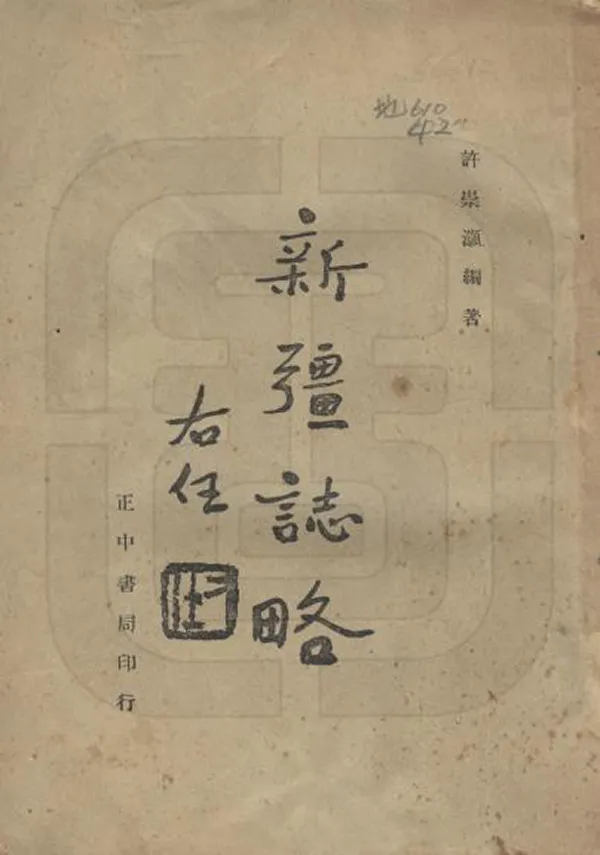 地610
許崇灝編著
新疆誌略
右任
正中書局印行